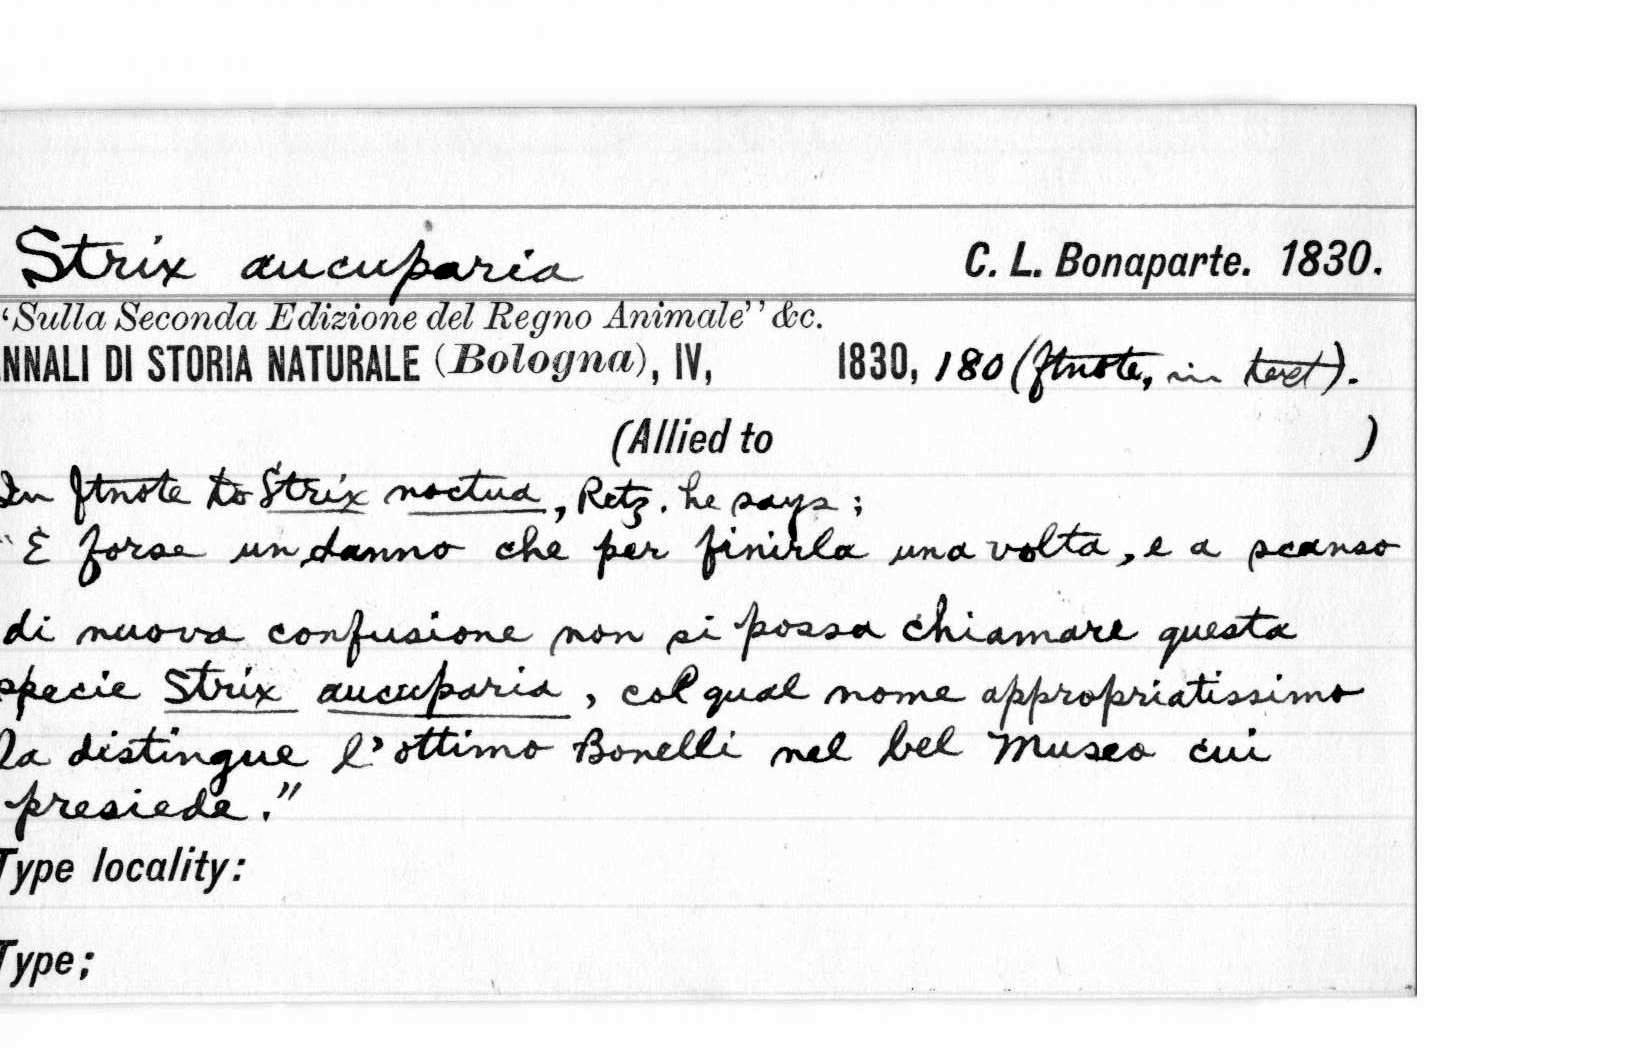 Strix aucuparia C. L. Bonaparte. 1830.
‘Sulla Seconda Edizione del Regno Animale’’ &c.
NNALI DI STORIA NATURALE (Bologna), IV, 1830, 180 (ftnote, in text).
(Allied to )
In ftnote to Strix noctua, Retz. he says;
"È forse un danno che per finirla una volta, e a scanso
di nuova confusione non si possa chiamare questa
specie Strix aucuparia, col qual nome appropriatissimo
la distingue l'ottimo Bonelli nel bel Museo cui
presiede."
Type locality:
Type;